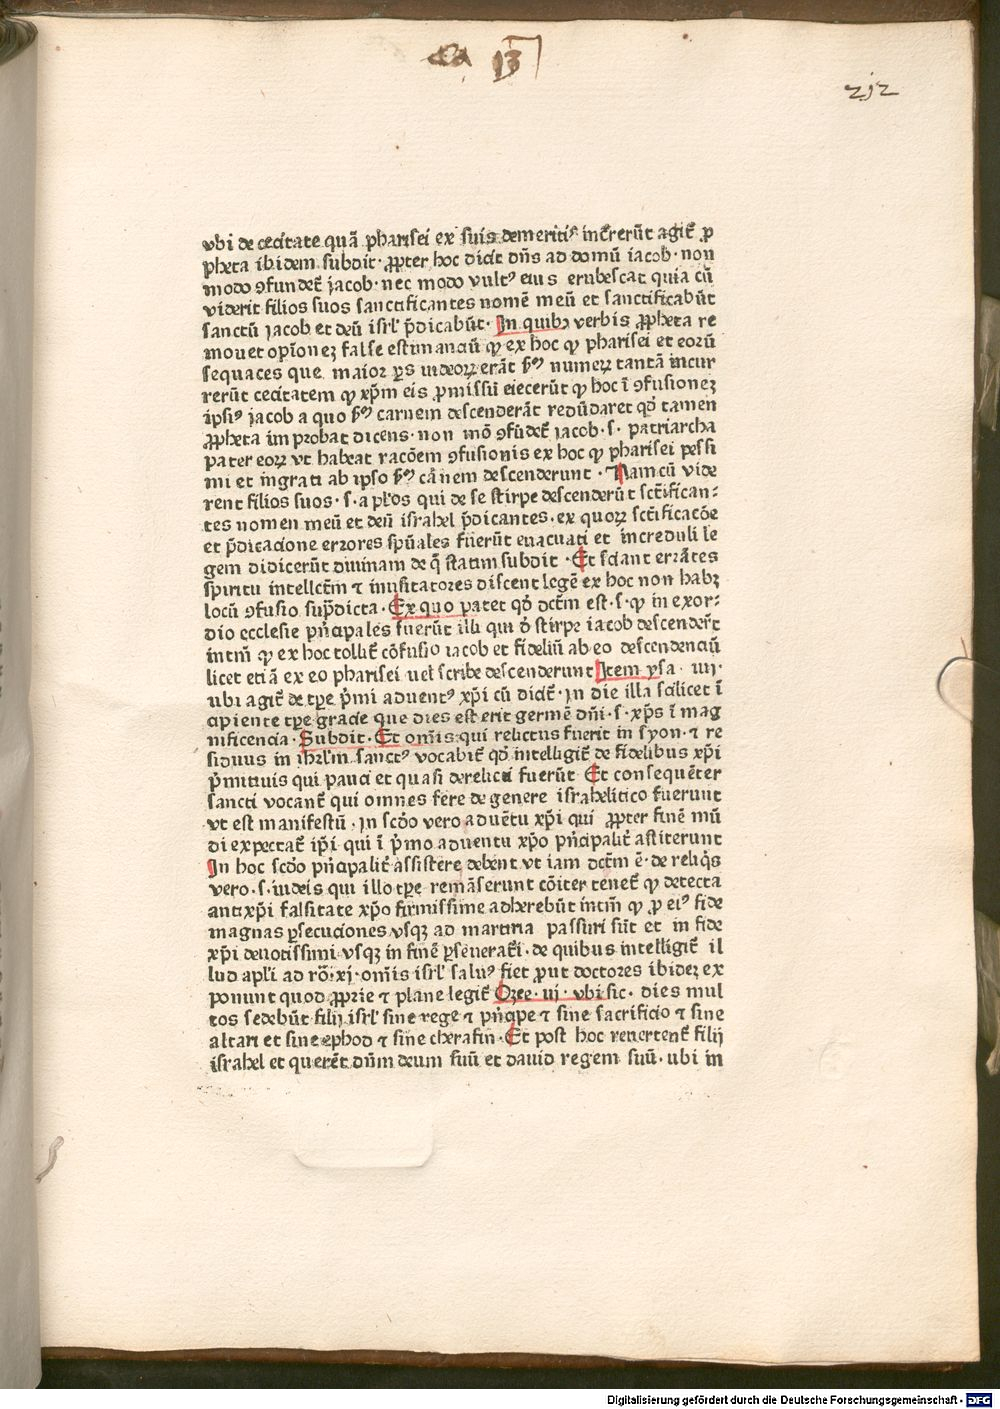 13
212
vbi de cecitate quā pharisei ex suis demeritꝰ incr̄rerūt agit̄ ꝓ
pheta ibidem subdit· ꝓpter hoc dicit dn̄s ad domū iacob· non
modo ꝯfundet̄ jacob· nec modo vultꝰ eius erubescat quia cū
viderit filios suos sanctificantes nomē meū et sanctificabūt
sanctū jacob et deū isrl̄ p̄dicabūt· In quibꝫ verbis ꝓpheta re
mouet opīonez false estimanciū ꝙ ex hoc ꝙ pharisei et eorū
sequaces que maior ꝑs iudeoꝝ erāt ẜꝫ numeꝝ tantā incur
rerūt cecitatem ꝙ xp̄m eis ꝓmissū eiecerūt ꝙ hoc ī ꝯfusionez
ipsiꝰ jacob a quo ẜꝫ carnem descenderāt redūdaret qd̄ tamen
ꝓpheta improbat dicens· non mō ꝯfūdet̄ jacob· s· patriarcha
pater eoꝝ vt habeat racōem ꝯfusionis ex hoc ꝙ pharisei pessi
mi et ingrati ab ipso ẜꝫ cānem descenderunt · Nam cū vide
rent filios suos· s· apl̄os qui de se stirpe descenderūt sct̄ifican⸗
tes nomen meū et deū israhel p̄dicantes· ex quoꝝ sct̄ificacōe
et p̄dicacione errores spūales fuerūt euacuati et increduli le
gem didicerūt diuinam de q̄ statim subdit · Et sciant errātes
spiritu intellct̄m ⁊ musitatores discent legē ex hoc non habꝫ
locū ꝯfusio sup̄dicta · Ex quo patet qd̄ dct̄m est· s· ꝙ in exor⸗
dio ecclesie pn̄cipales fuerūt illi qui d̄ stirpe iacob descender̄t
intm̄ ꝙ ex hoc tollit̄ cōfusio iacob et fideliū ab eo descendenciū
licet etiā ex eo pharisei uel scribe descenderunt Item ysa · iiij·
ubi agit̄ de tꝑe p̄mi aduentꝰ xp̄i cū dicit̄· In die illa scilicet ī
cipiente tꝑe gracie que dies est erit germē dn̄i· s· xp̄s ī mag
nificencia· Subdit· Et om̄is qui relictus fuerit in syon· ⁊ re
siduus in ihrl̄m sanctꝰ vocabit̄ qd̄ intelligit̄ de fidelibus xp̄i
p̄mitiuis qui pauci et quasi derelicti fuerūt Et consequēter
sancti vocant̄ qui omnes fere de genere israhelitico fuerunt
vt est manifestū · In scd̄o vero aduētu xp̄i qui ꝓpter finē mū
di expectat̄ ip̄i qui ī p̄mo aduentu xp̄o pn̄cipalit̄ astiterunt
In hoc scd̄o pn̄cipalit̄ assistere debent vt iam dct̄m ē· de reliq̄s
vero· s· iudeis qui illo tꝑe remāserunt cōiter tenet̄ ꝙ detecta
antixp̄i falsitate xp̄o firmissime adherebūt intm̄ ꝙ ꝓ eiꝰ fide
magnas ꝑsecuciones vsqꝫ ad martiria passuri sūt et in fide
xp̄i deuotissimi vsqꝫ in finē ꝑseuerat̄i· de quibus intelligit̄ il
lud apl̄i ad rō· xj· om̄is isrl̄ saluꝰ fiet ꝓut doctores ibidez ex
ponunt quod ꝓprie ⁊ plane legit̄ Ozee· iij · vbi sic· dies mul
tos sedebūt filij isrl̄ sine rege ⁊ pn̄cipe ⁊ sine sacrificio ⁊ sine
altari et sine ephod ⁊ sine therafin· Et post hoc reuertent̄ filij
israhel et querēt dn̄m deum suū et dauid regem suū· ubi in
Digitalisierung gefördert durch die Deutsche Forschungsgemeinschaft - DFG